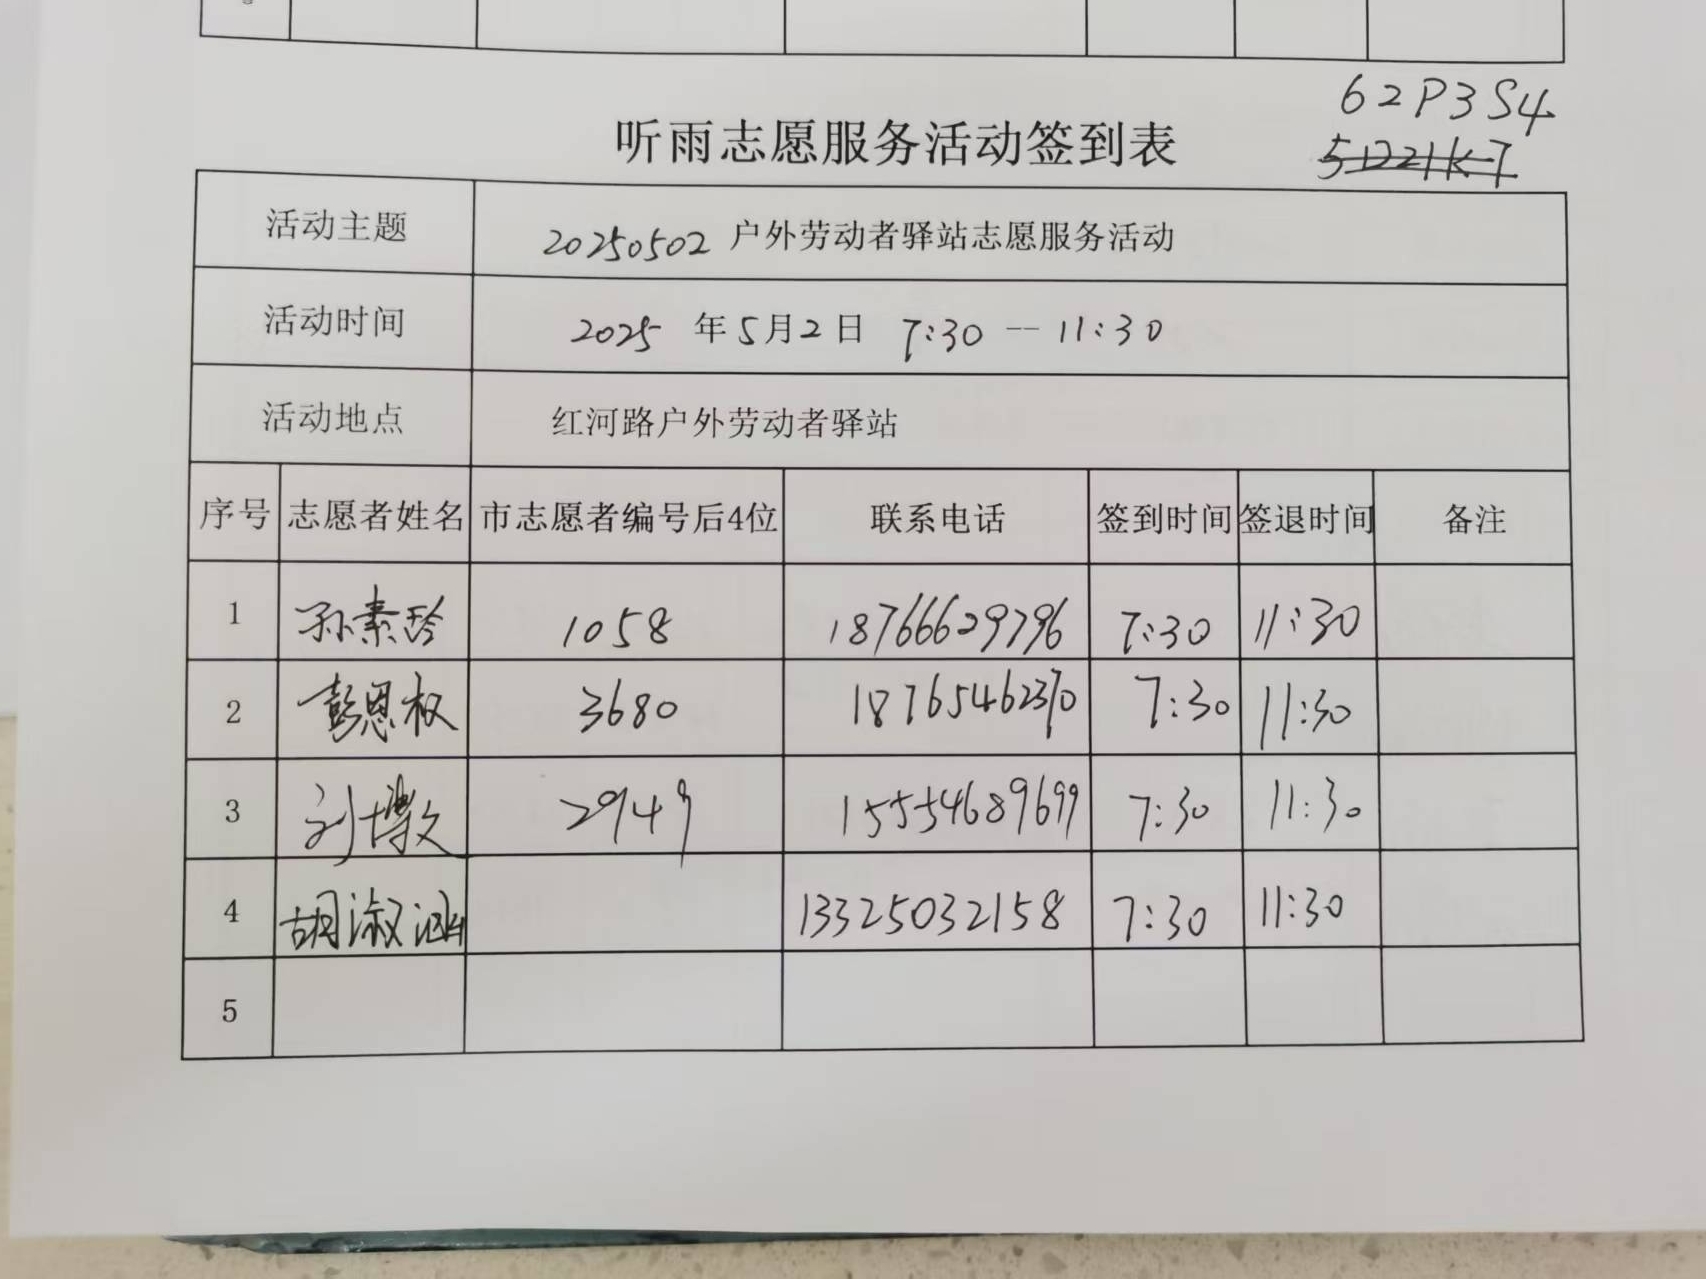 62P3S4
听雨志愿服务活动签到表
活动主题 20250502 户外劳动者驿站志愿服务活动
活动时间 2025 年5月2日 7:30 — 11:30
活动地点 红河路户外劳动者驿站
序号 志愿者姓名 市志愿者编号后4位 联系电话 签到时间 签退时间 备注
1 孙素玲 1058 18766629796 7:30 11:30
2 彭恩权 3680 18765462370 7:30 11:30
3 刘 2949 15554689699 7:30 11:30
4 胡淑涵 13325032158 7:30 11:30
5